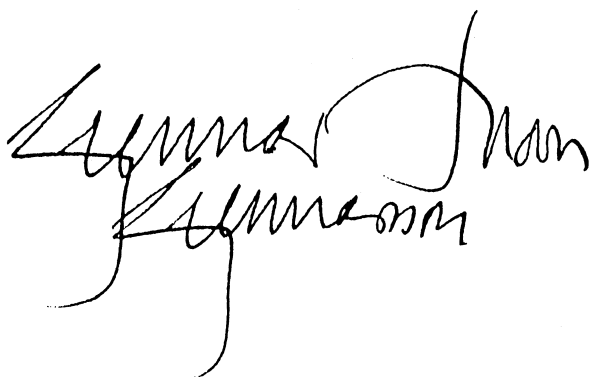 Gunnar Ivan
Gunnarsson